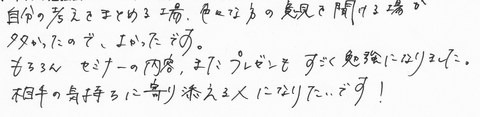 自分の考えをまとめる場、色々な方の意見を聞ける場が
多かったので、よかったです。
もちろん セミナーの内容、またプレゼンも すごく勉強になりました。
相手の気持ちに寄り添える人になりたいです！